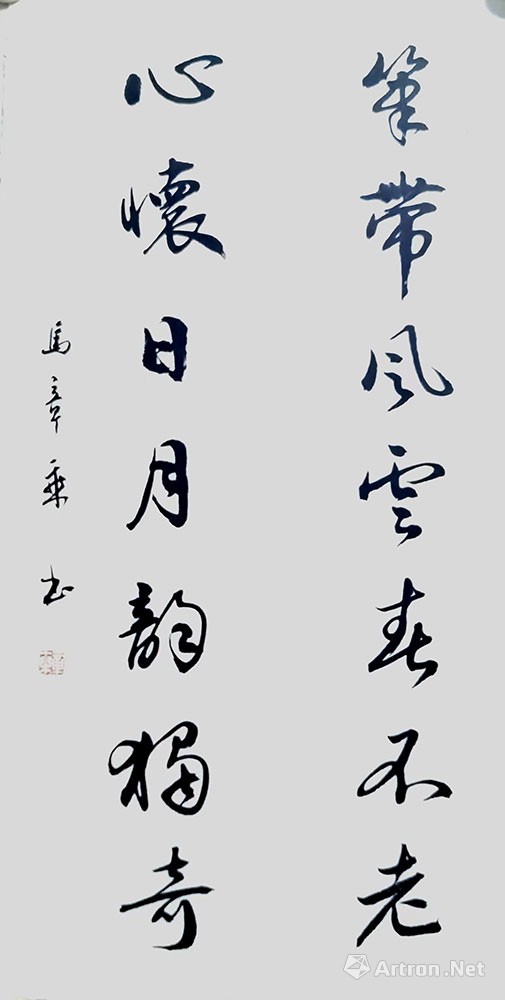 筆帶風雲春不老
心懷日月韵獨奇
馬章乘 书
Artron.Net